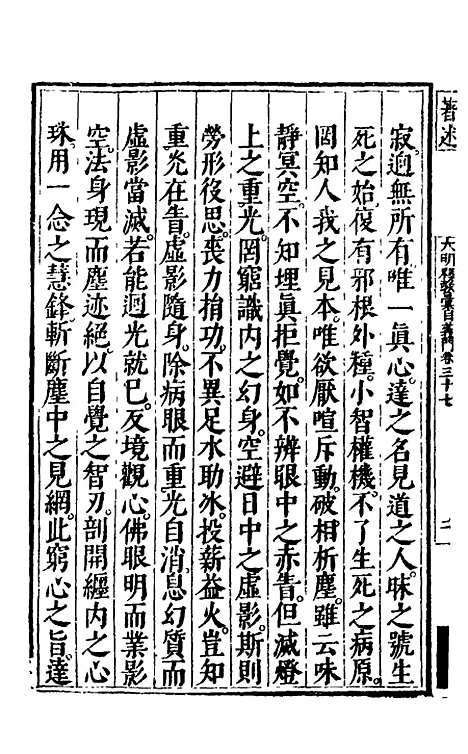 著述
大明釋教彙目義門卷三十七
二
寂逈無所有唯一真心達之名見道之人昧之號生
死之始復有邪根外種小智權機不了生死之病原
罔知人我之見本唯欲厭喧斥動破相析塵雖云味
靜冥空不知埋眞拒覺如不辨眼中之赤眚但滅燈
上之重光罔窮識內之幻身空避日中之虛影斯則
勞形役思喪力捐功不異足水助氷投薪益火豈知
重光在眚虛影隨身除病眼而重光自消息幻質而
虛影當滅若能迴光就巳反境觀心佛眼明而業影
空法身現而塵迹絕以自覺之智刃剖開纏內之心
珠用一念之慧鋒斬斷塵中之見網此窮心之旨達